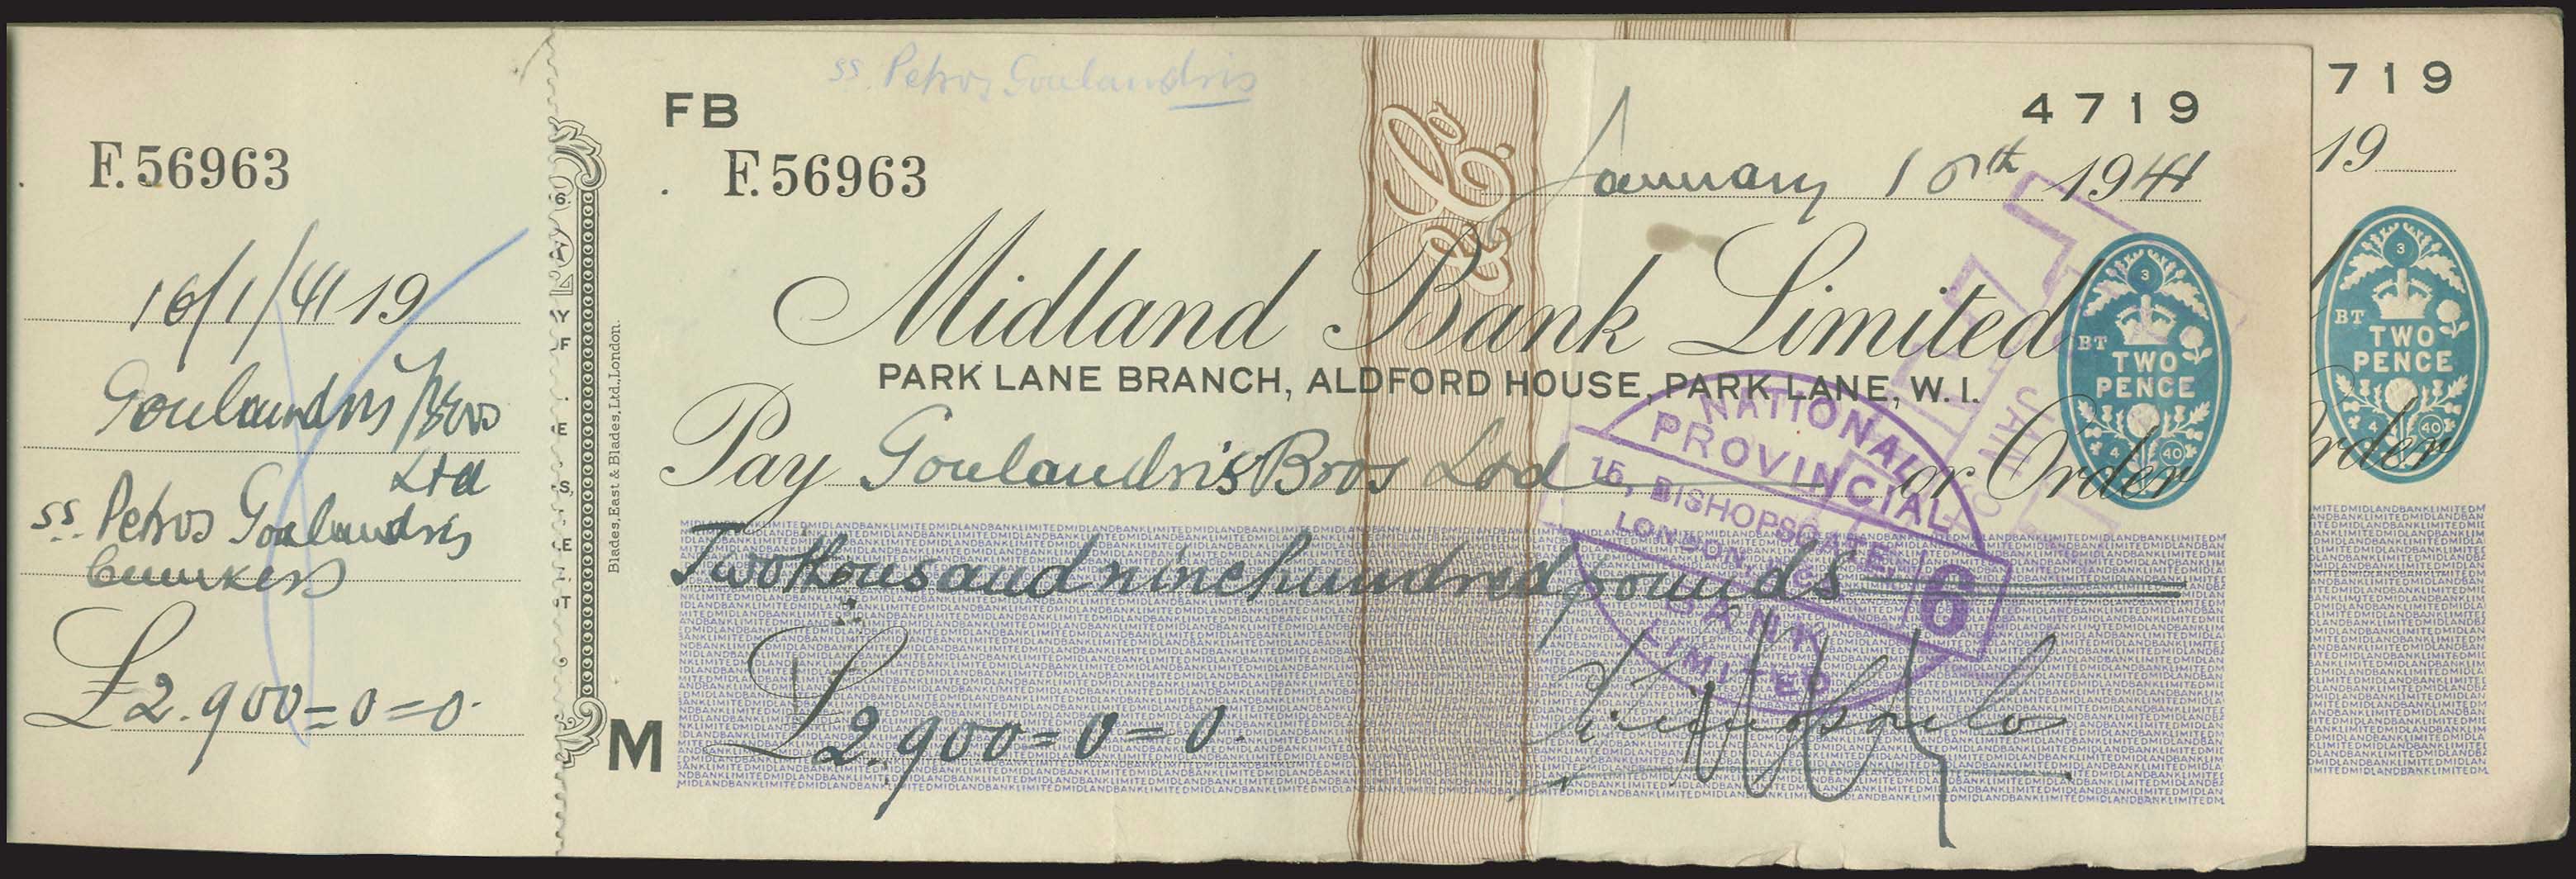 F.56963
16/1/41 19
Goulandris Bros
Ltd
ss. Petros Goulandris
bunkers
£2.900=0=0.
Blades, East & Blades, Ltd., London.
ss. Petros Goulandris
FB
4719
F.56963
January 16th 1941
& Co.
Midland Bank Limited
PARK LANE BRANCH, ALDFORD HOUSE, PARK LANE, W.1.
Pay Goulandris Bros Ltd or Order
Two thousand nine hundred pounds
£2.900=0=0.
M
BT
3
TWO
PENCE
4 40
NATIONAL
PROVINCIAL
15, BISHOPSGATE,
LONDON,
6
BANK
LIMITED
JAN
MIDLANDBANKLIMITED
719
19
3
BT
TWO
PENCE
4 40
Order